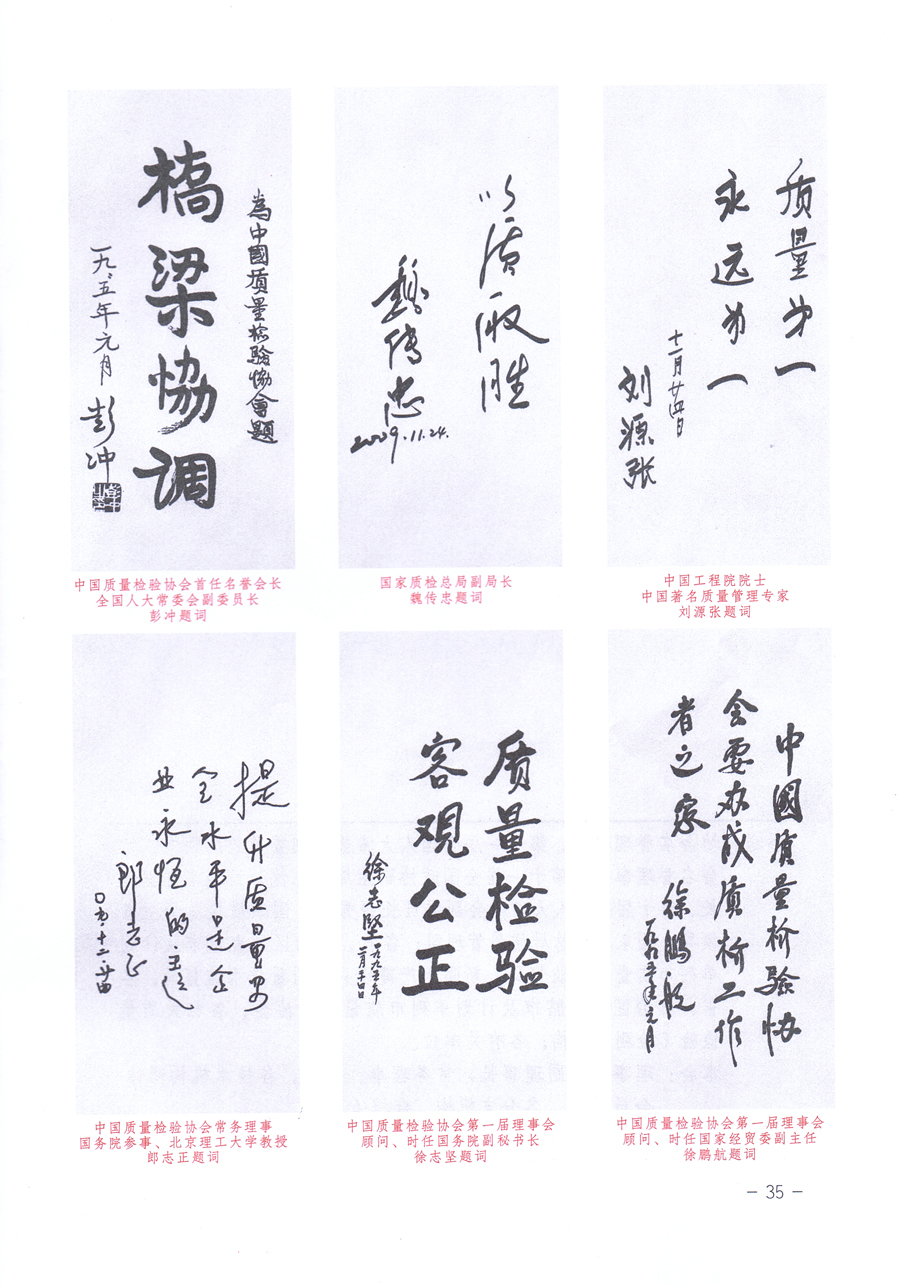 為中國质量检验协會題
橋梁协调
一九九五年元月
彭冲
中国质量检验协会首任名誉会长
全国人大常委会副委员长
彭冲题词
以质取胜
魏传忠
2009.11.24.
国家质检总局副局长
魏传忠题词
质量第一
永远第一
十一月廿四日
刘源张
中国工程院院士
中国著名质量管理专家
刘源张题词
提升质量安
全水平是企
业永恒的主题
郎志正
〇九.十一.廿四
中国质量检验协会常务理事
国务院参事、北京理工大学教授
郎志正题词
质量检验
客观公正
徐志坚
一九九五年
中国质量检验协会第一届理事会
顾问、时任国务院副秘书长
徐志坚题词
中國质量检验协
会要办成质检工作
者之家
徐鹏航
一九九五年元月
中国质量检验协会第一届理事会
顾问、时任国家经贸委副主任
徐鹏航题词
- 35 -